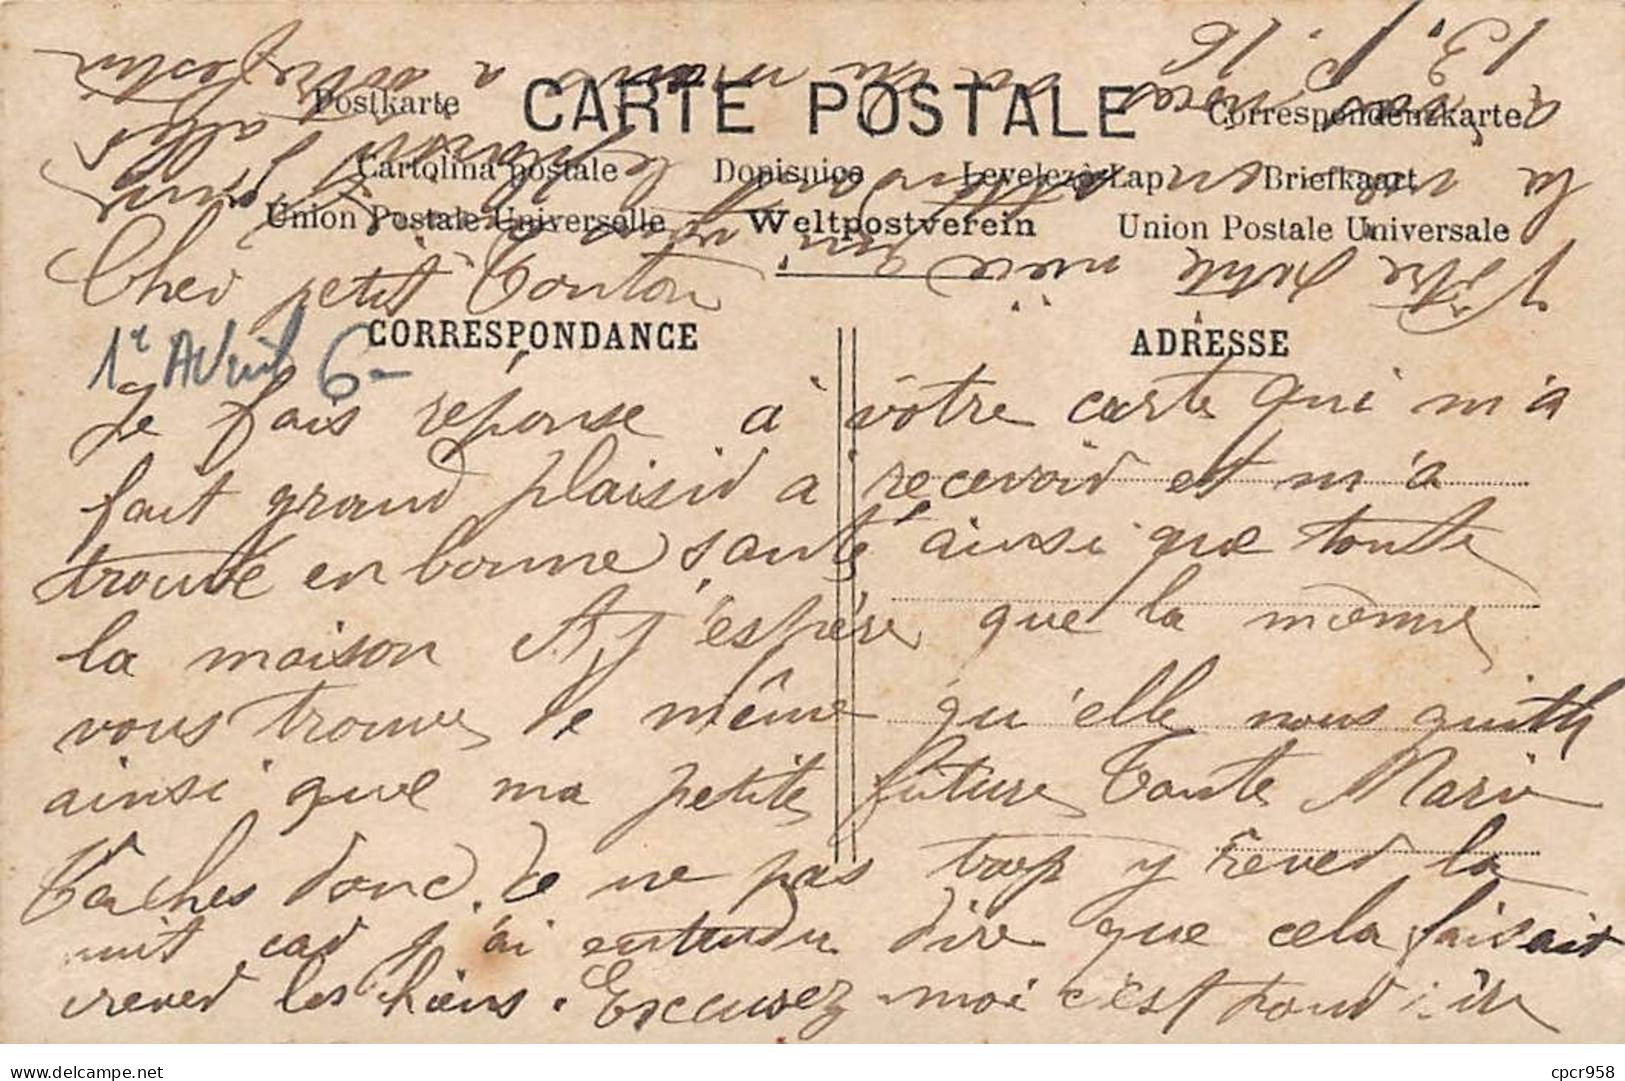 Postkarte CARTE POSTALE Correspondenzkarte
Cartolina postale Dopisnice Levelezö-Lap Briefkaart
Union Postale Universelle Weltpostverein Union Postale Universale
Cher petit Tonton
CORRESPONDANCE ADRESSE
1er Avril 6-
Je fais réponse a vôtre carte qui m'a
fait grand plaisid a recevoid et m'a
trouvé en bonne santé ainsi que toute
la maison Et j'éspére que la mienne
vous trouve de même qu'elle nous quitte
ainsi que ma petite future Tante Marie
Taches donc de ne pas trop y rever la
nuit cad j'ai entendu dire que cela faisait
rever les chiens. Excusez moi c'est poud rire
Vôtre petite niece
13.